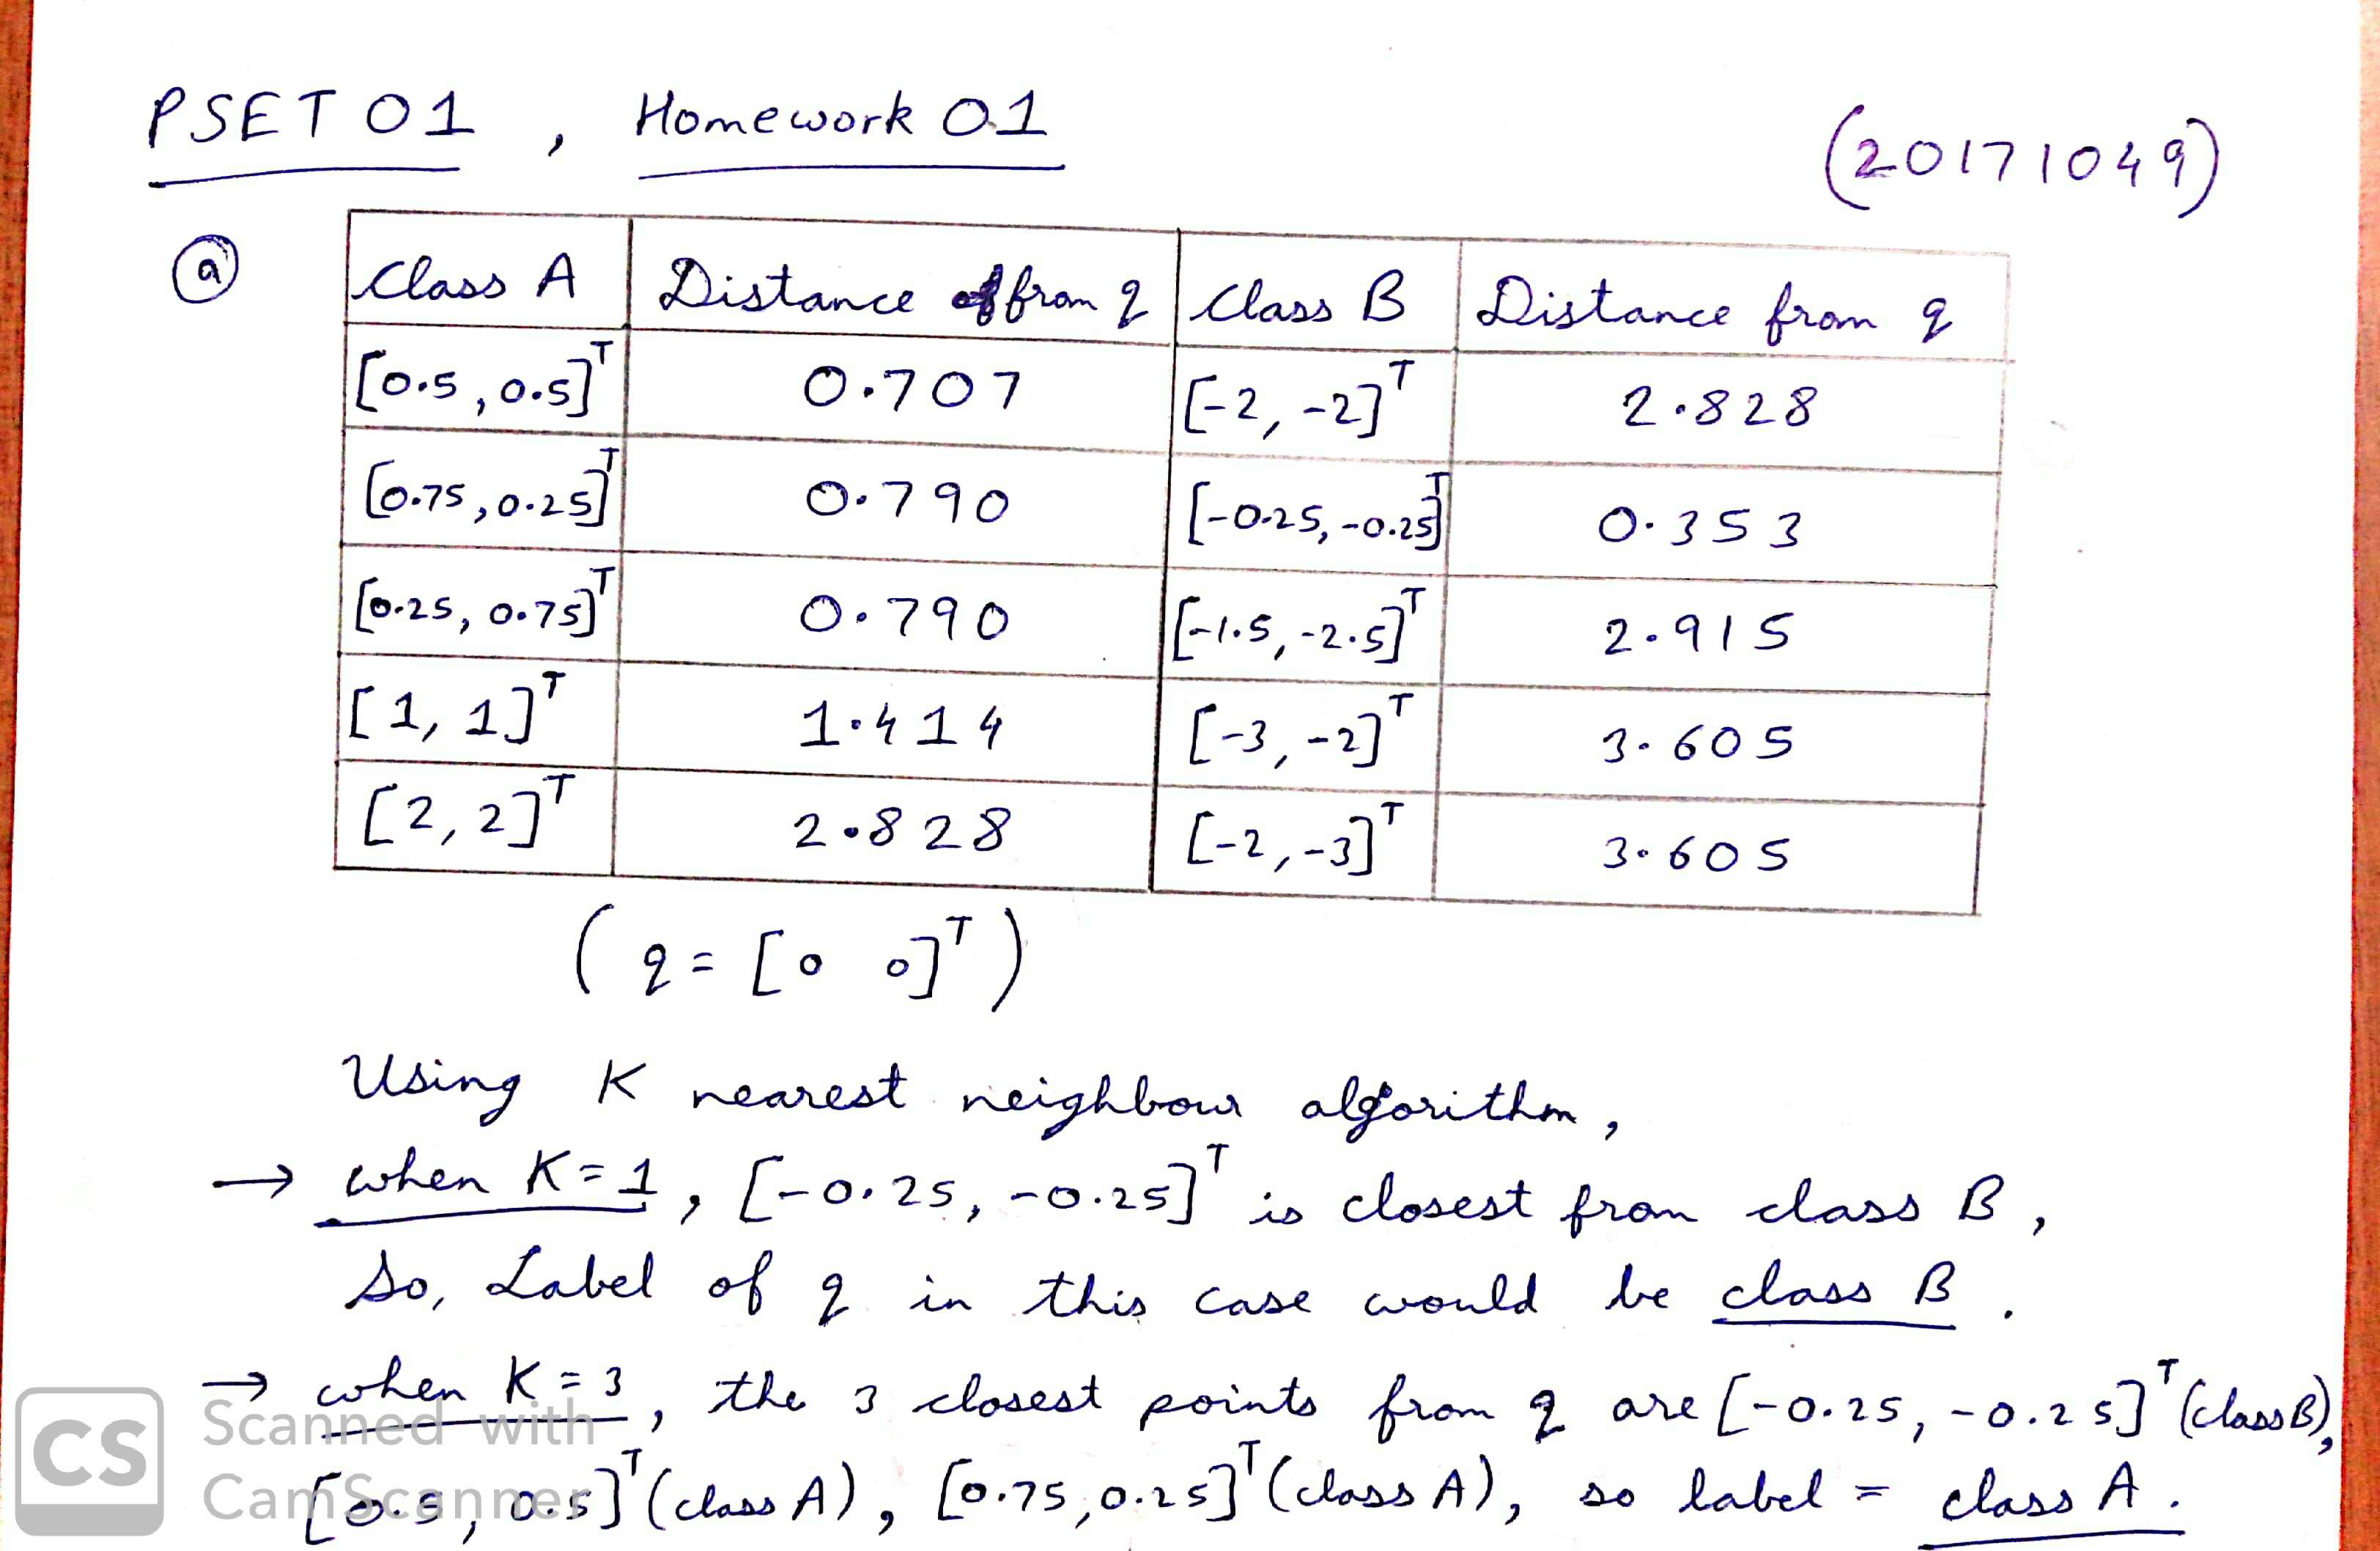 PSET 01 , Homework 01
(20171049)
(a)
Class A | Distance from q | Class B | Distance from q
[0.5, 0.5]ᵀ | 0.707 | [-2, -2]ᵀ | 2.828
[0.75, 0.25]ᵀ | 0.790 | [-0.25, -0.25]ᵀ | 0.353
[0.25, 0.75]ᵀ | 0.790 | [-1.5, -2.5]ᵀ | 2.915
[1, 1]ᵀ | 1.414 | [-3, -2]ᵀ | 3.605
[2, 2]ᵀ | 2.828 | [-2, -3]ᵀ | 3.605
(q = [0 0]ᵀ)
Using K nearest neighbour algorithm,
→ when K=1, [-0.25, -0.25]ᵀ is closest from class B,
so, Label of q in this case would be class B.
→ when K=3, the 3 closest points from q are [-0.25, -0.25]ᵀ (class B),
[0.5, 0.5]ᵀ (class A), [0.75, 0.25]ᵀ (class A), so label = class A.
CS
Scanned with
CamScanner